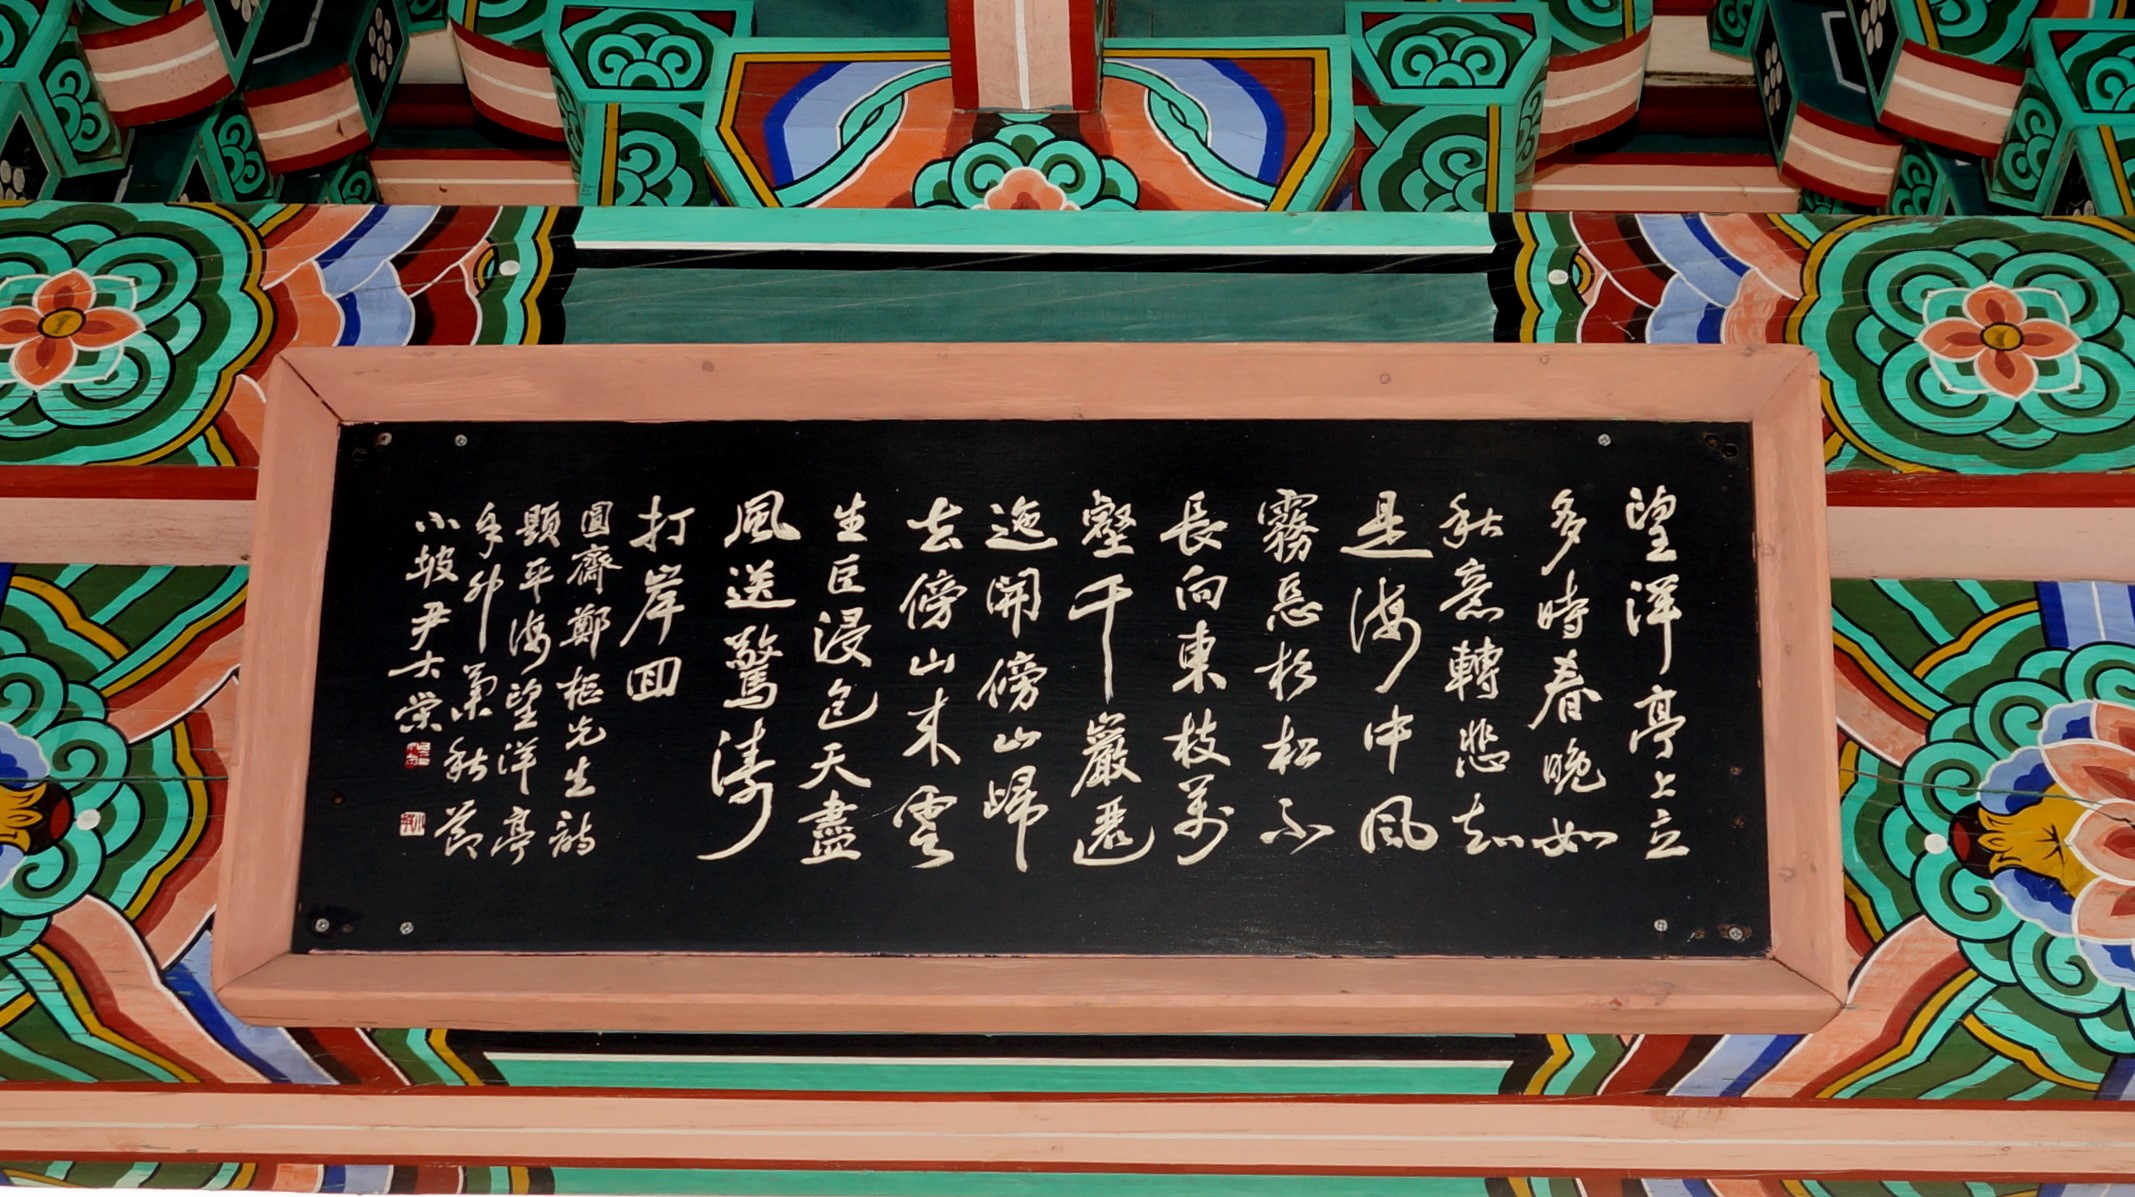 望洋亭上立
多時春晚如
秋意轉悲知
是海中風
霧惡杉松不
長向東枝萬
壑千巖邐
迤開傍山歸
去傍山来雲
生巨浸包天盡
風送驚濤
打岸回
圓齋鄭樞先生詩
題平海望洋亭
辛卯菊秋節
小坡尹大榮